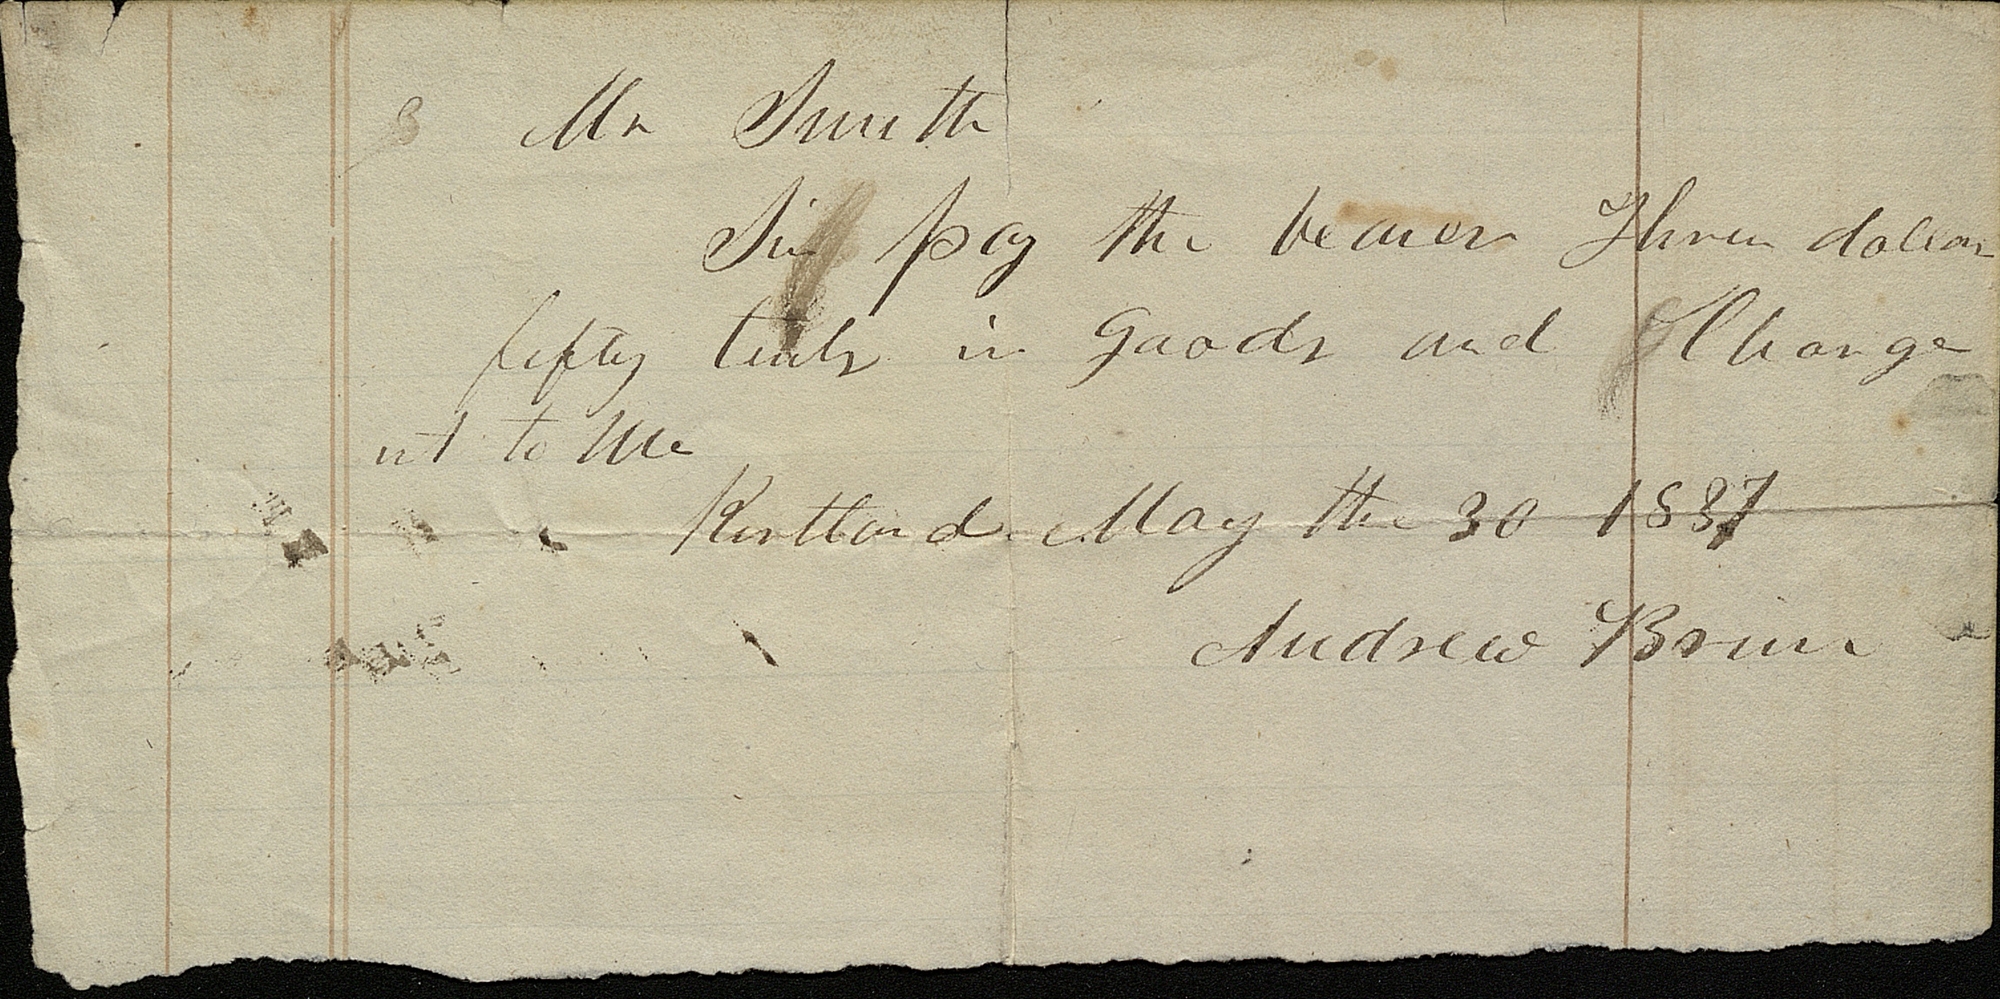 Mr Smith
Sir pay the bearer Three dollars
fifty Cents in Goods and Charge
it to Me
Kirtland May the 30 1837
Andrew Brim